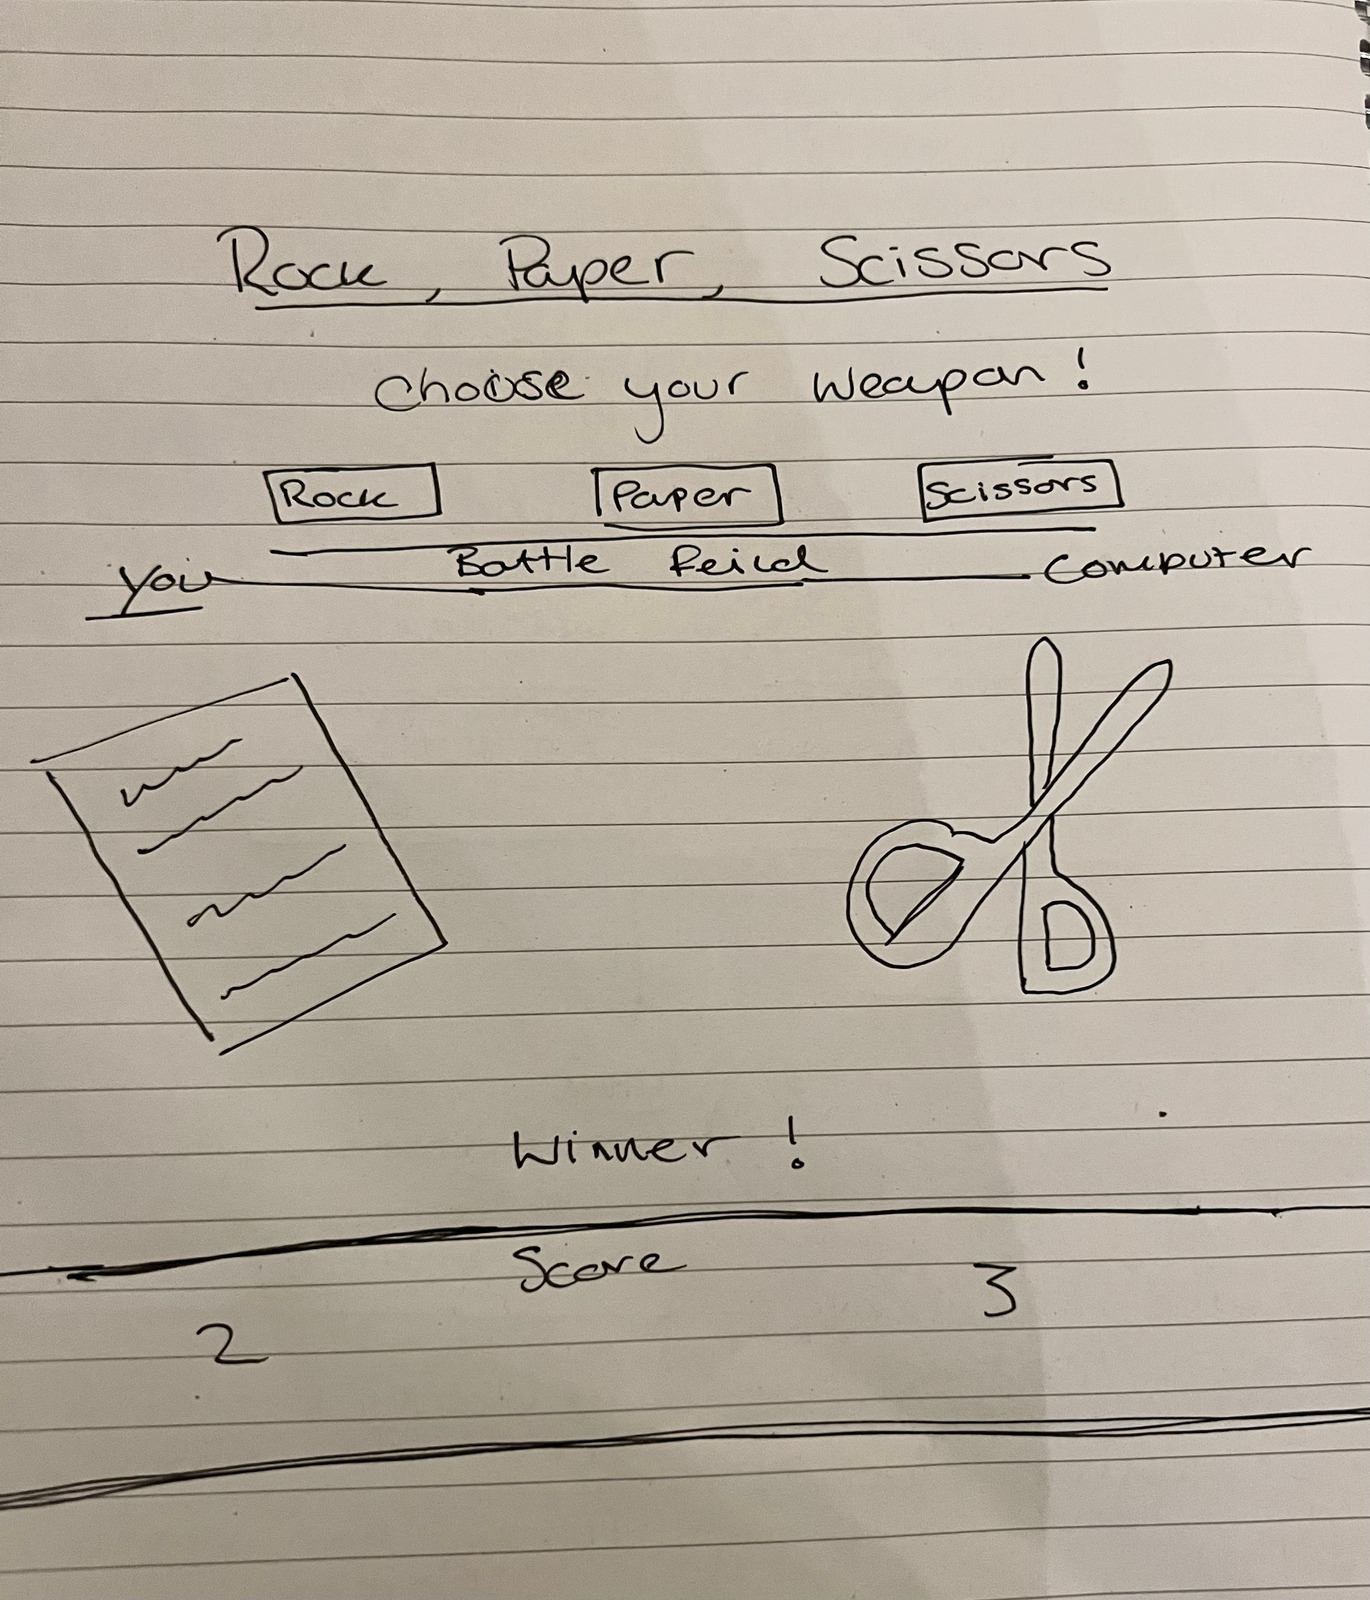 Rock, Paper, Scissors
Choose your weapon!
Rock Paper Scissors
Battle feild
You Computer
Winner!
Score
2 3